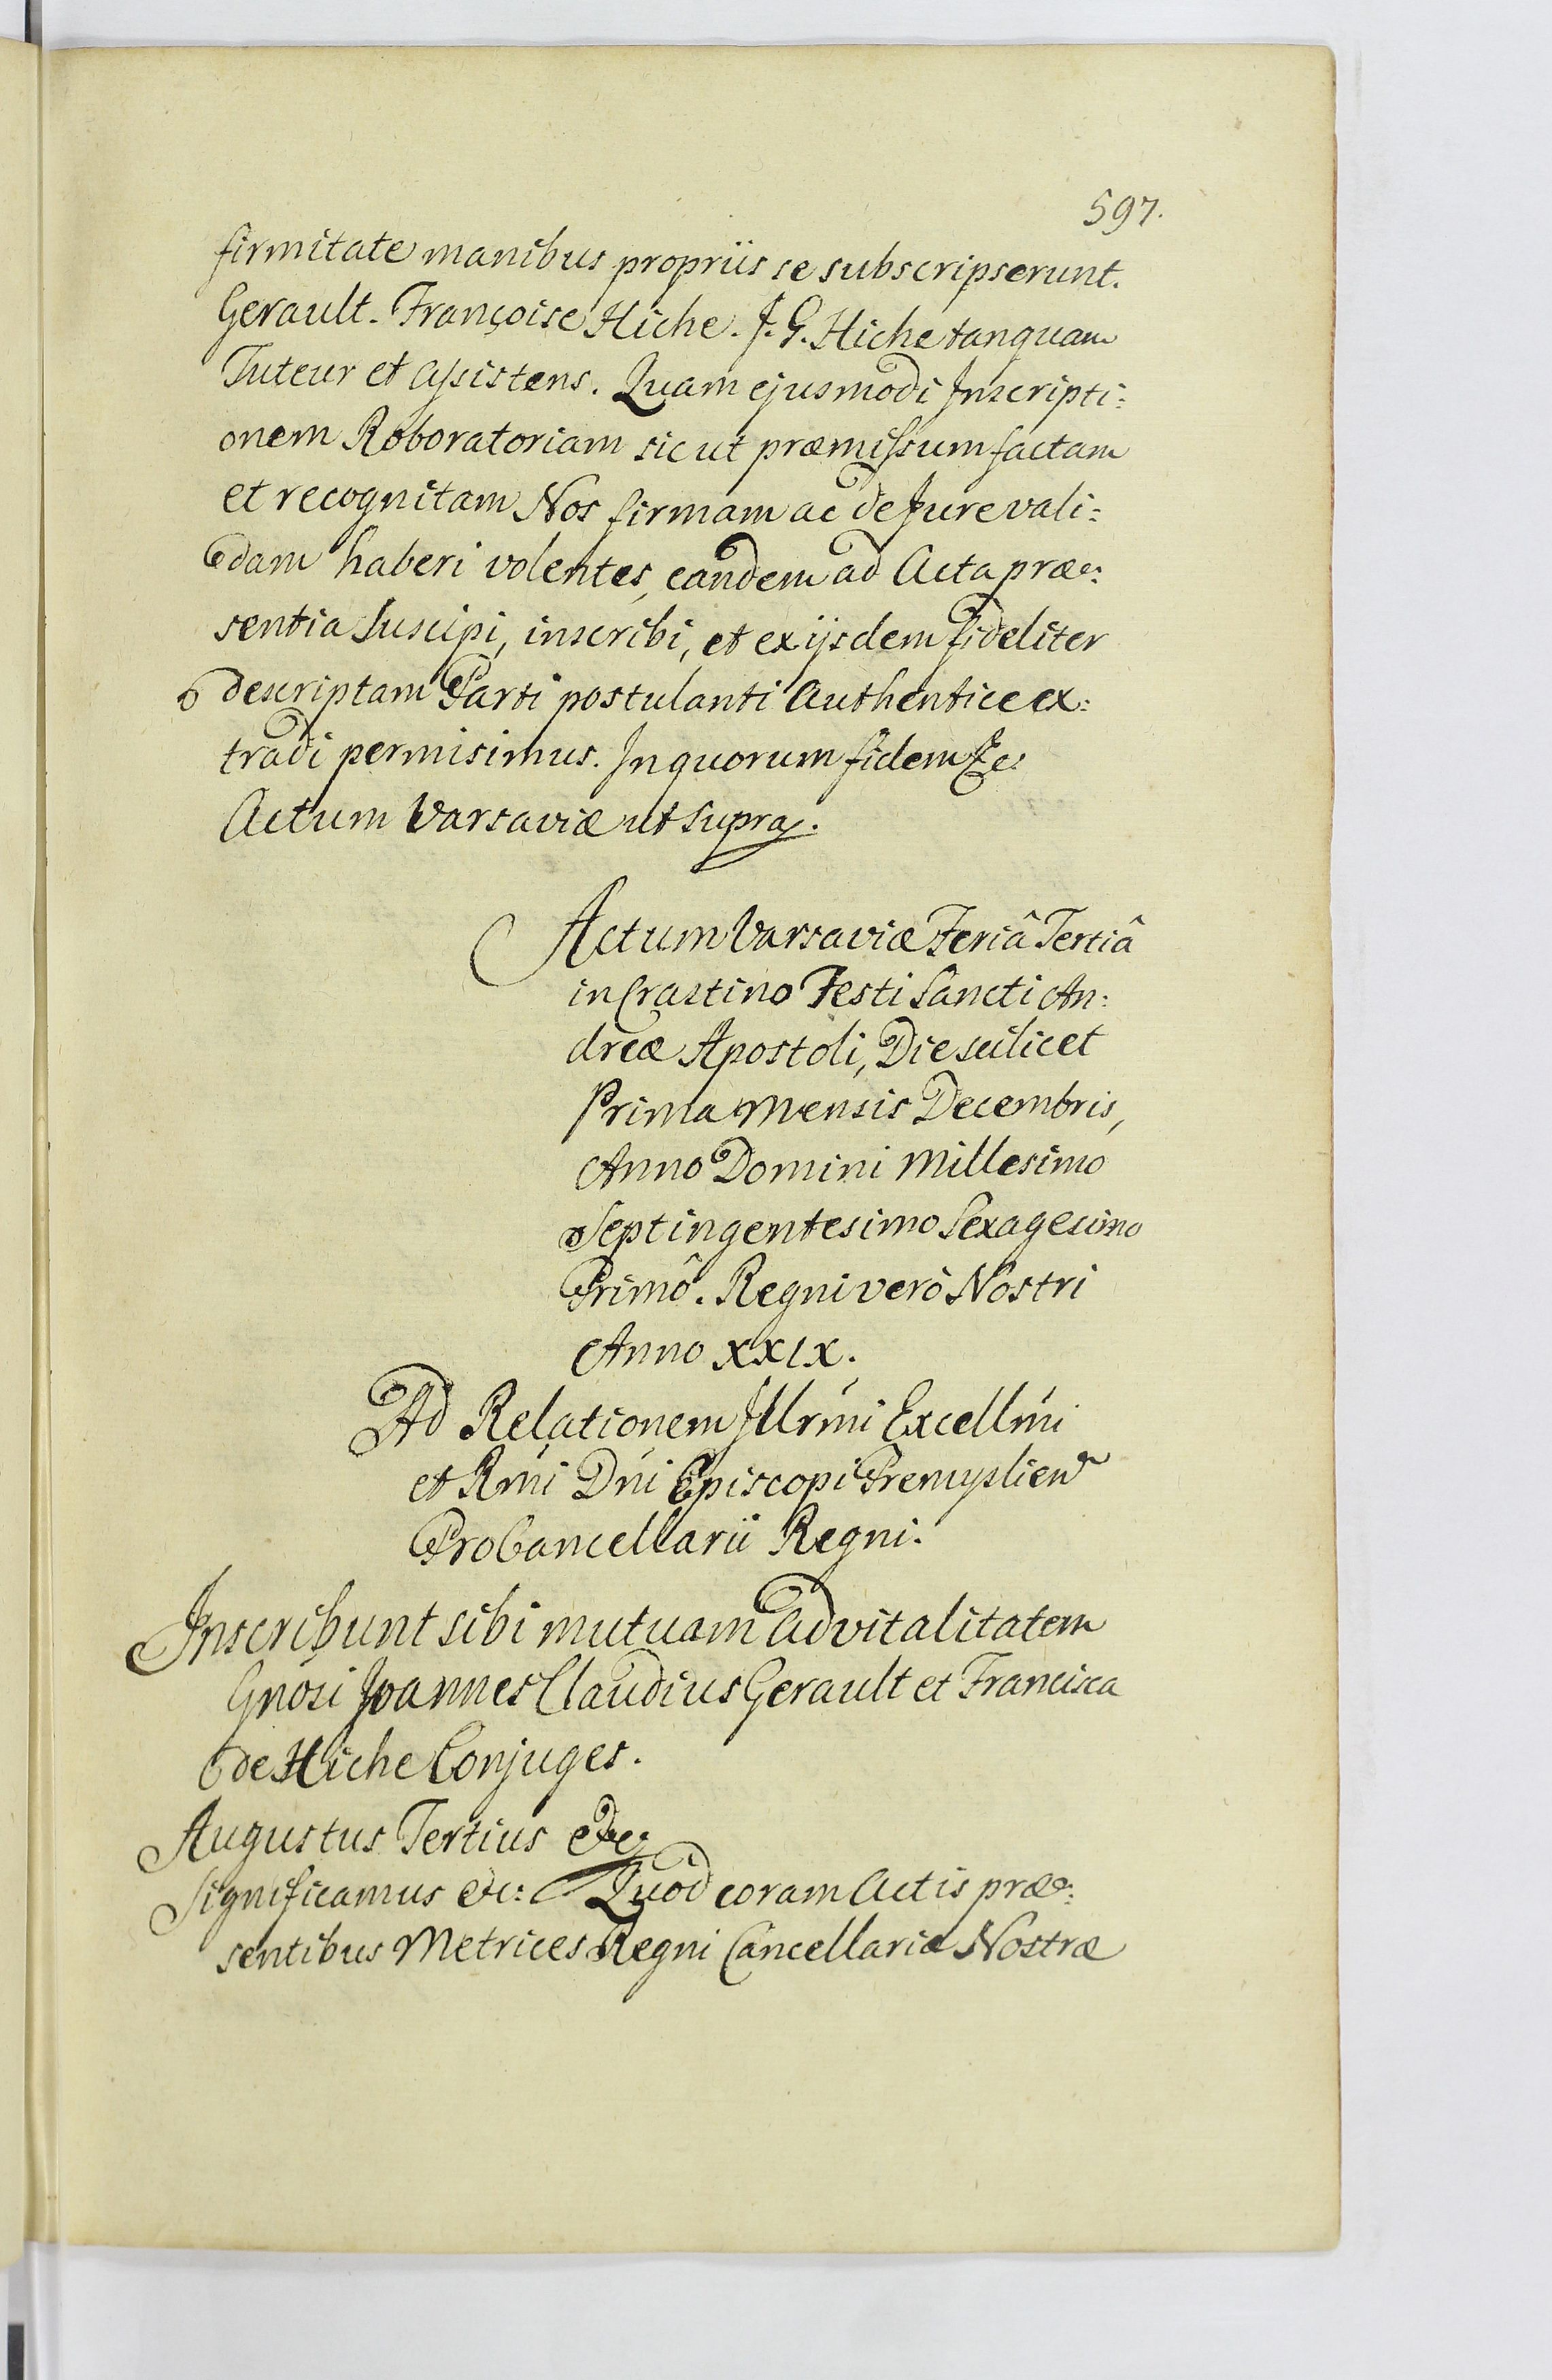 597.
firmitate manibus propriis se subscripserunt.
Gerault. Françoise Hiche. J. G. Hiche tanquam
Tuteur et Assistens. Quam ejusmodi Inscripti:
onem Roboratoriam sicut præmissum factam
et recognitam Nos firmam ac de Jure vali:
dam haberi volentes, eandem ad Acta præ:
sentia suscipi, inscribi, et ex ijsdem fideliter
descriptam Parti postulanti Authentice ex:
tradi permisimus. In quorum fidem &c:
Actum Varsaviæ ut supra.
Actum Varsaviæ Feriâ Tertiâ
in Crastino Festi Sancti An:
dreæ Apostoli, Die scilicet
Prima Mensis Decembris,
Anno Domini Millesimo
Septingentesimo Sexagesimo
Primô. Regni verò Nostri
Anno XXIX.
Ad Relationem Illrmi Excellmi
et Rmi Dni Episcopi Premyslien
ProCancellarii Regni.
Inscribunt sibi mutuam advitalitatem
Gnosi Joannes Claudius Gerault et Francisca
de Hiche Conjuges.
Augustus Tertius &c:
Significamus &c: Quòd coram Actis præ:
sentibus Metrices Regni Cancellariæ Nostræ